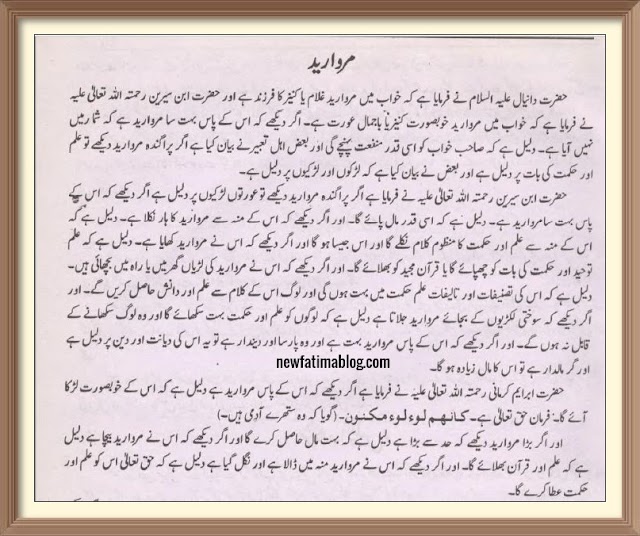 مروارید
حضرت دانیال علیہ السلام نے فرمایا ہے کہ خواب میں مروارید غلام یا کنیز کا فرزند ہے اور حضرت ابن سیرین رحمتہ اللہ تعالیٰ علیہ
نے فرمایا ہے کہ خواب میں مروارید خوبصورت کنیز یا باجمال عورت ہے۔ اگر دیکھے کہ اس کے پاس بہت سا مروارید ہے کہ شمار میں
نہیں آیا ہے۔ دلیل ہے کہ صاحب خواب کو اسی قدر منفعت پہنچے گی اور بعض اہل تعبیر نے بیان کیا ہے اگر پراگندہ مروارید دیکھے تو علم
اور حکمت کی بات پر دلیل ہے اور بعض نے بیان کیا ہے کہ لڑکوں اور لڑکیوں پر دلیل ہے۔
حضرت ابن سیرین رحمتہ اللہ تعالیٰ علیہ نے فرمایا ہے اگر پراگندہ مروارید دیکھے تو عورتوں لڑکیوں پر دلیل ہے اگر دیکھے کہ اس کے
پاس بہت سا مروارید ہے۔ دلیل ہے کہ اسی قدر مال پائے گا۔ اور اگر دیکھے کہ اس کے منہ سے مروارید کا ہار نکلا ہے۔ دلیل ہے کہ
اس کے منہ سے علم اور حکمت کا منظوم کلام نکلے گا اور اس جیسا ہو گا اور اگر دیکھے کہ اس نے مروارید کھایا ہے۔ دلیل ہے کہ علم
توحید اور حکمت کی بات کو چھپائے گا یا قرآن مجید کو بھلائے گا۔ اور اگر دیکھے کہ اس نے مروارید کی لڑیاں گھر میں یا راہ میں بچھائی ہیں۔
دلیل ہے کہ اس کی تصنیفات اور تالیفات علم حکمت میں بہت ہوں گی اور لوگ اس کے کلام سے علم اور دانش حاصل کریں گے۔ اور
اگر دیکھے کہ سوختی لکڑیوں کے بجائے مروارید جلاتا ہے دلیل ہے کہ لوگوں کو علم اور حکمت بہت سکھائے گا اور وہ لوگ سکھانے کے
قابل نہ ہوں گے۔ اور اگر دیکھے کہ اس کے پاس مروارید بہت ہے اور وہ پارسا اور دیندار ہے تو یہ اس کی دیانت اور دین پر دلیل ہے
اور گر مالدار ہے تو اس کا مال زیادہ ہو گا۔
newfatimablog.com
حضرت ابراہیم کرمانی رحمتہ اللہ تعالیٰ علیہ نے فرمایا ہے اگر دیکھے کہ اس کے پاس مروارید ہے دلیل ہے کہ اس کے خوبصورت لڑکا
آئے گا۔ فرمان حق تعالیٰ ہے۔ کانھم لوء لوء مکنون۔ (گویا کہ وہ ستھرے آدمی ہیں۔)
اور اگر بڑا مروارید دیکھے کہ حد سے بڑا ہے دلیل ہے کہ بہت مال حاصل کرے گا اور اگر دیکھے کہ اس نے مروارید بیچا ہے دلیل
ہے کہ علم اور قرآن بھلائے گا۔ اور اگر دیکھے کہ اس نے مروارید منہ میں ڈالا ہے اور نگل گیا ہے دلیل ہے کہ حق تعالیٰ اس کو علم اور
حکمت عطا کرے گا۔